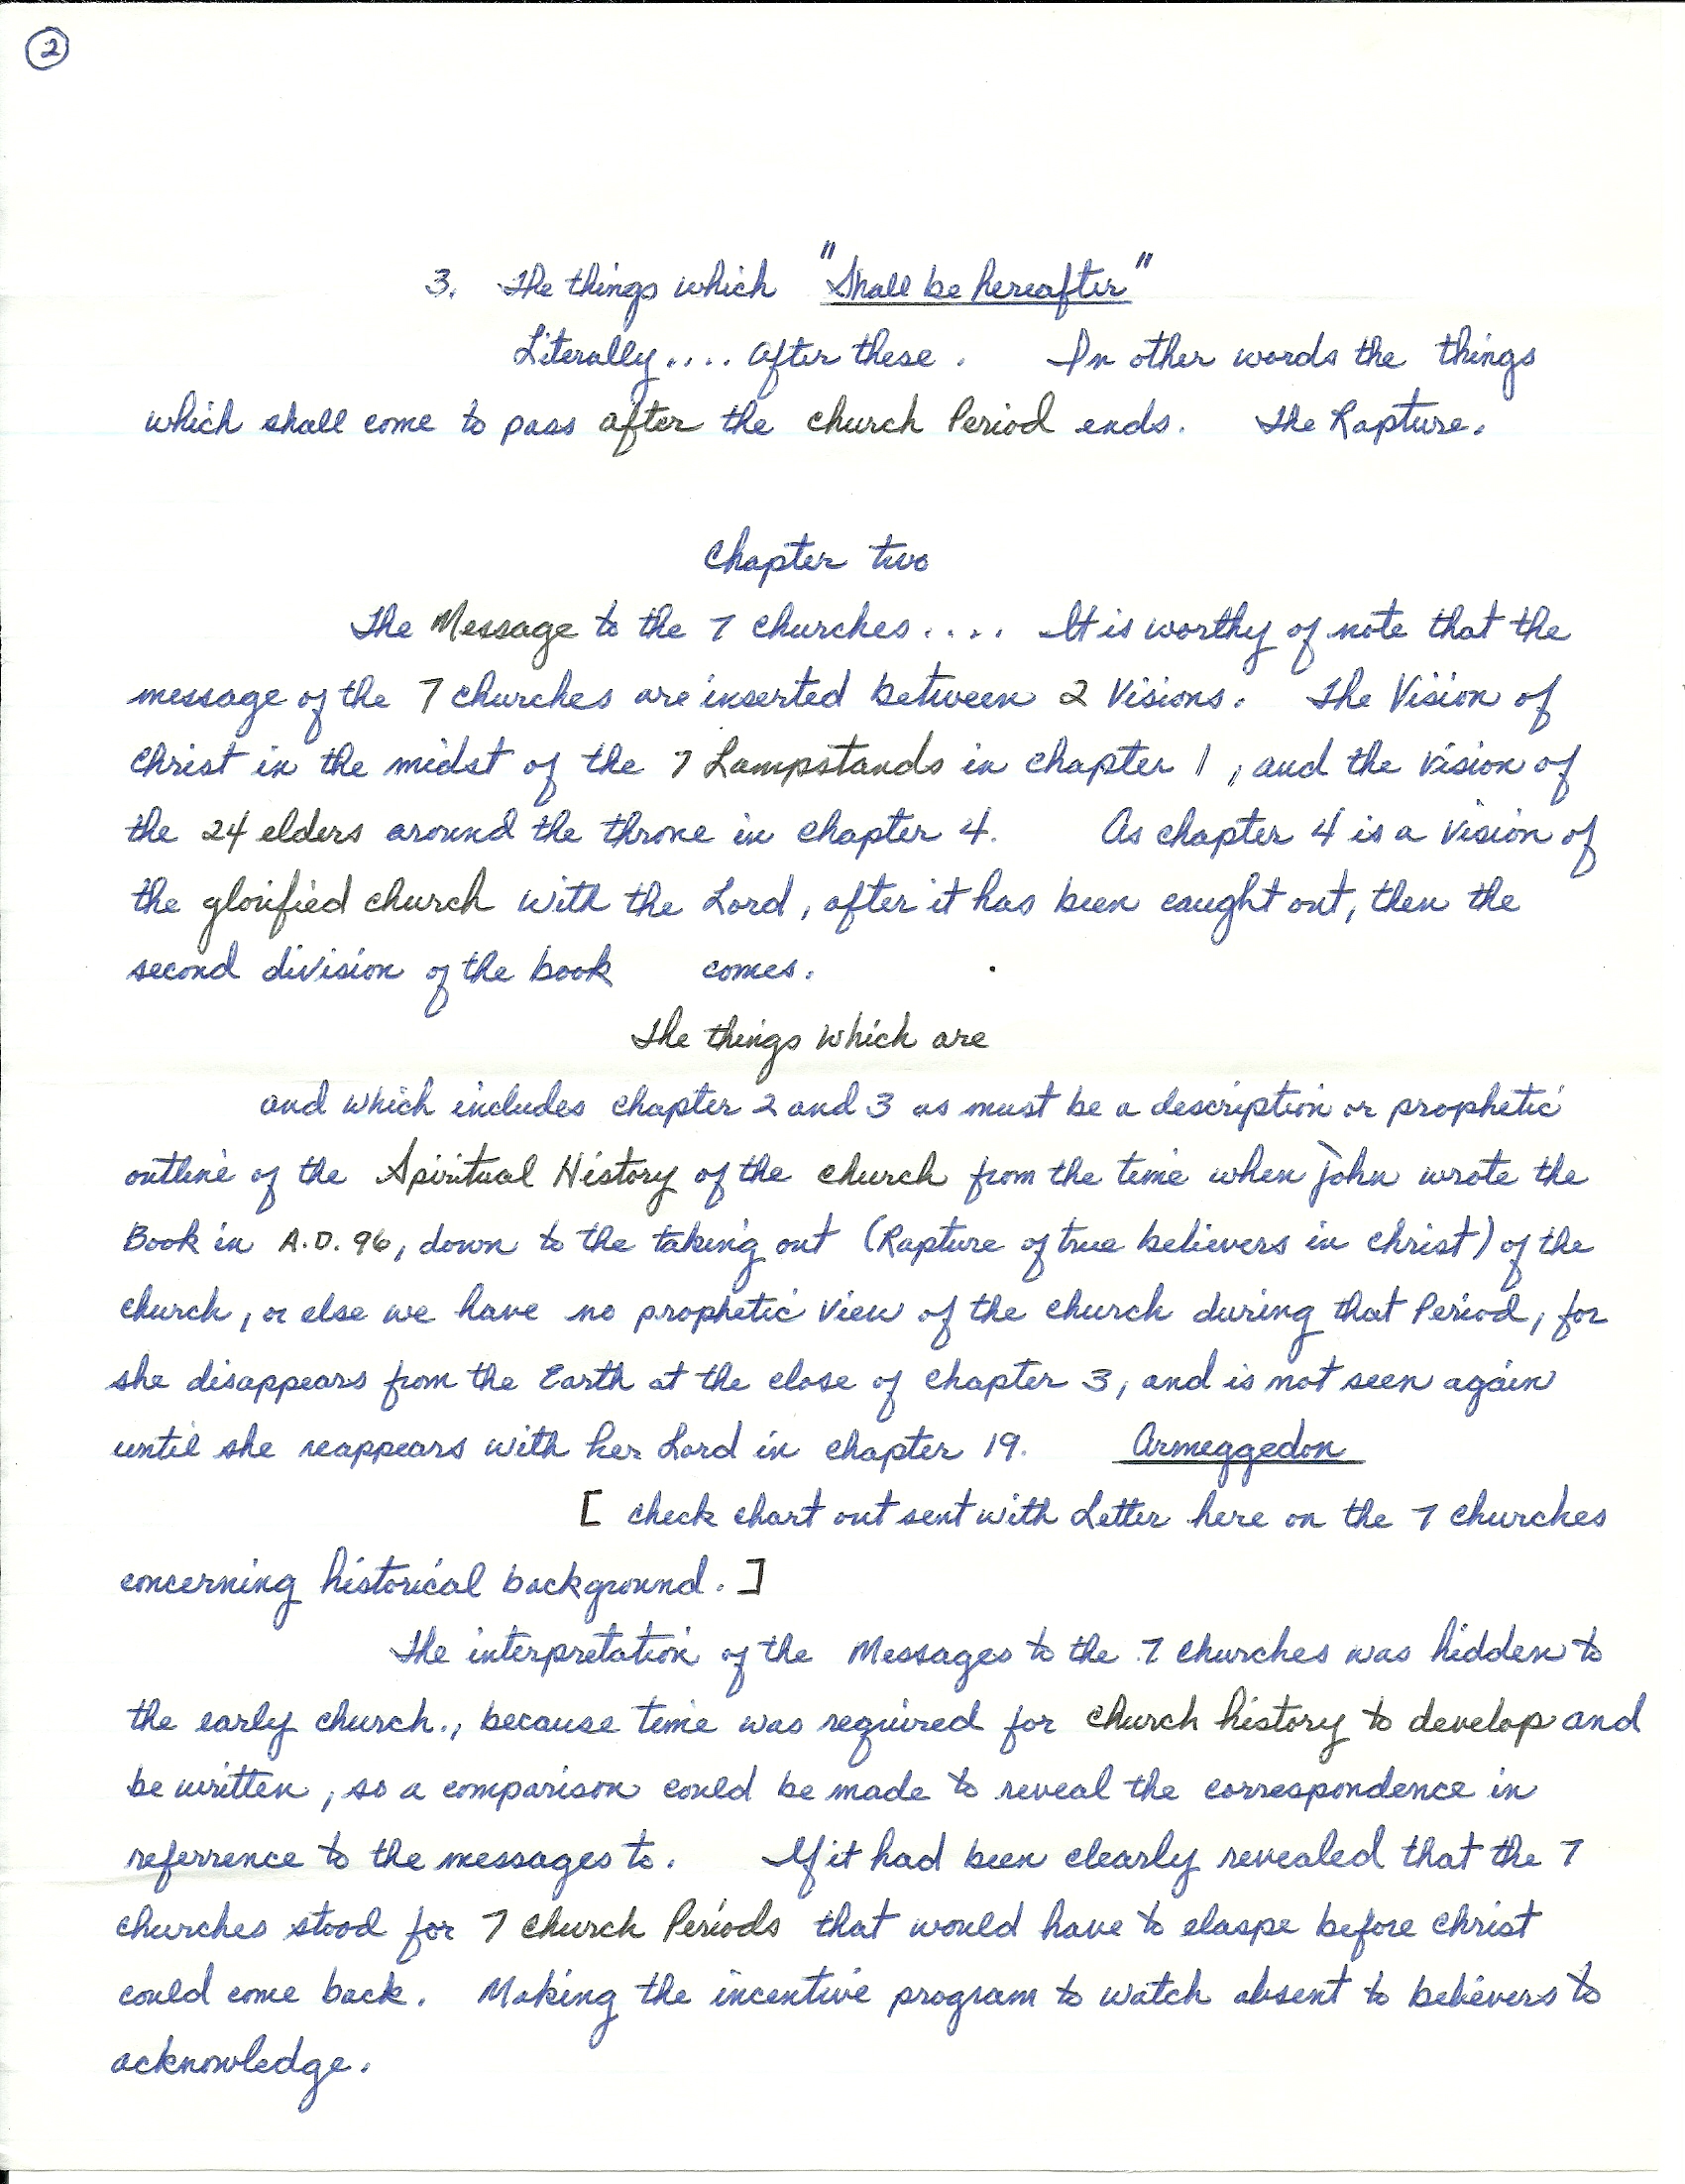 2
3. The things which "Shall be hereafter"
Literally.... after these. In other words the things
which shall come to pass after the church Period ends. The Rapture.
Chapter two
The Message to the 7 churches.... It is worthy of note that the
message of the 7 churches are inserted between 2 Visions. The Vision of
Christ in the midst of the 7 Lampstands in chapter 1, and the vision of
the 24 elders around the throne in chapter 4. As chapter 4 is a Vision of
the glorified church with the Lord, after it has been caught out, then the
second division of the book comes.
The things which are
and which includes chapter 2 and 3 as must be a description or prophetic
outline of the Spiritual History of the church from the time when John wrote the
Book in A.D. 96, down to the taking out (Rapture of true believers in Christ) of the
church, or else we have no prophetic view of the church during that Period, for
she disappears from the Earth at the close of chapter 3, and is not seen again
until she reappears with her Lord in chapter 19. Armeggedon
[ check chart out sent with Letter here on the 7 churches
concerning historical background. ]
The interpretation of the Messages to the 7 churches was hidden to
the early church., because time was required for church history to develop and
be written, so a comparison could be made to reveal the correspondence in
referrence to the messages to. If it had been clearly revealed that the 7
churches stood for 7 church Periods that would have to elaspe before Christ
could come back. Making the incentive program to watch absent to believers to
acknowledge.